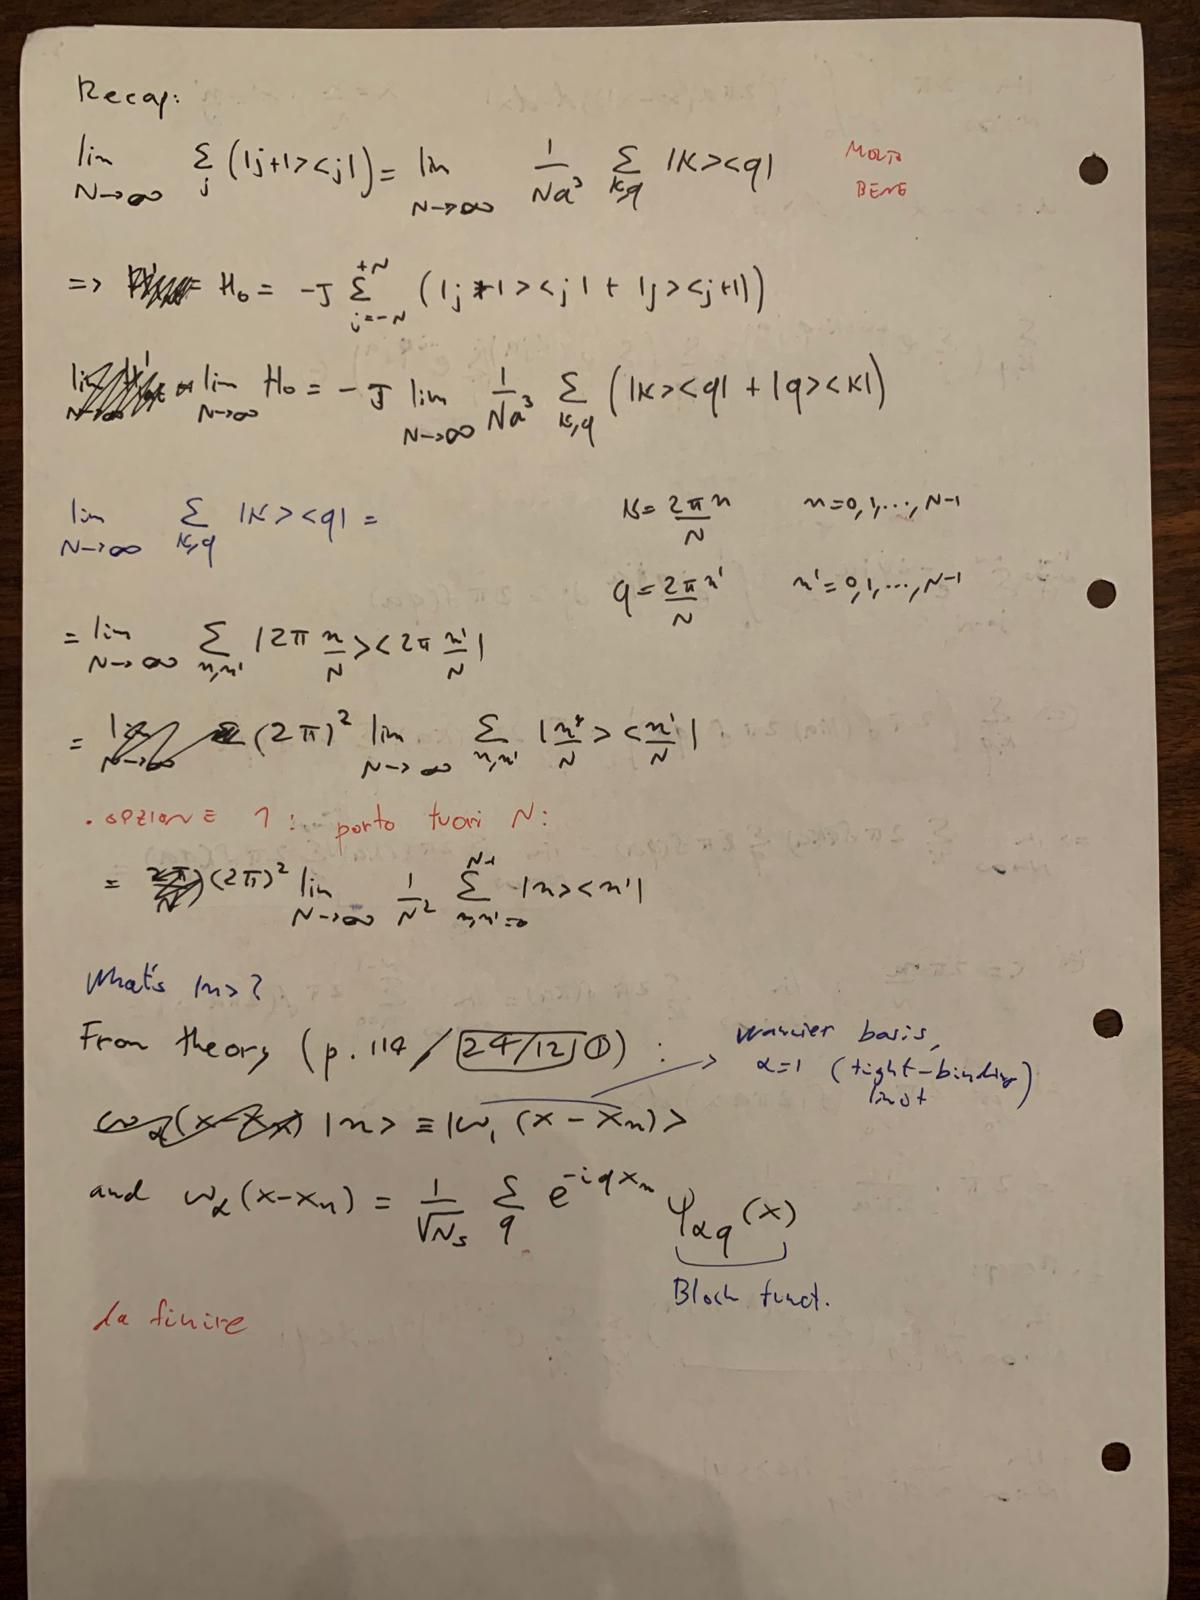 Recap:
lim N→∞ Σ_j (|j+1><j|) = lim N→∞ 1/(Na³) Σ_{k,q} |k><q| MOLTO BENE
=> H₀ = -J Σ_{j=-N}^{+N} (|j+1><j| + |j><j+1|)
lim N→∞ H₀ = -J lim N→∞ 1/(Na³) Σ_{k,q} (|k><q| + |q><k|)
lim N→∞ Σ_{k,q} |k><q| =
k = 2πn/N n=0,1,...,N-1
q = 2πn'/N n'=0,1,...,N-1
= lim N→∞ Σ_{n,n'} |2π n/N><2π n'/N|
= (2π)² lim N→∞ Σ_{n,n'} |n/N><n'/N|
• OPZIONE 1: porto fuori N:
= (2π)² lim N→∞ 1/N² Σ_{n,n'=0}^{N-1} |n><n'|
What's |n>?
From theory (p. 114 / 24/12 ①):
wannier basis,
α=1 (tight-binding)
|n> ≡ |w₁(x-xₙ)>
and w_α(x-xₙ) = 1/√N_s Σ_q e^{-iqxₙ} ψ_{αq}(x)
Bloch funct.
da finire